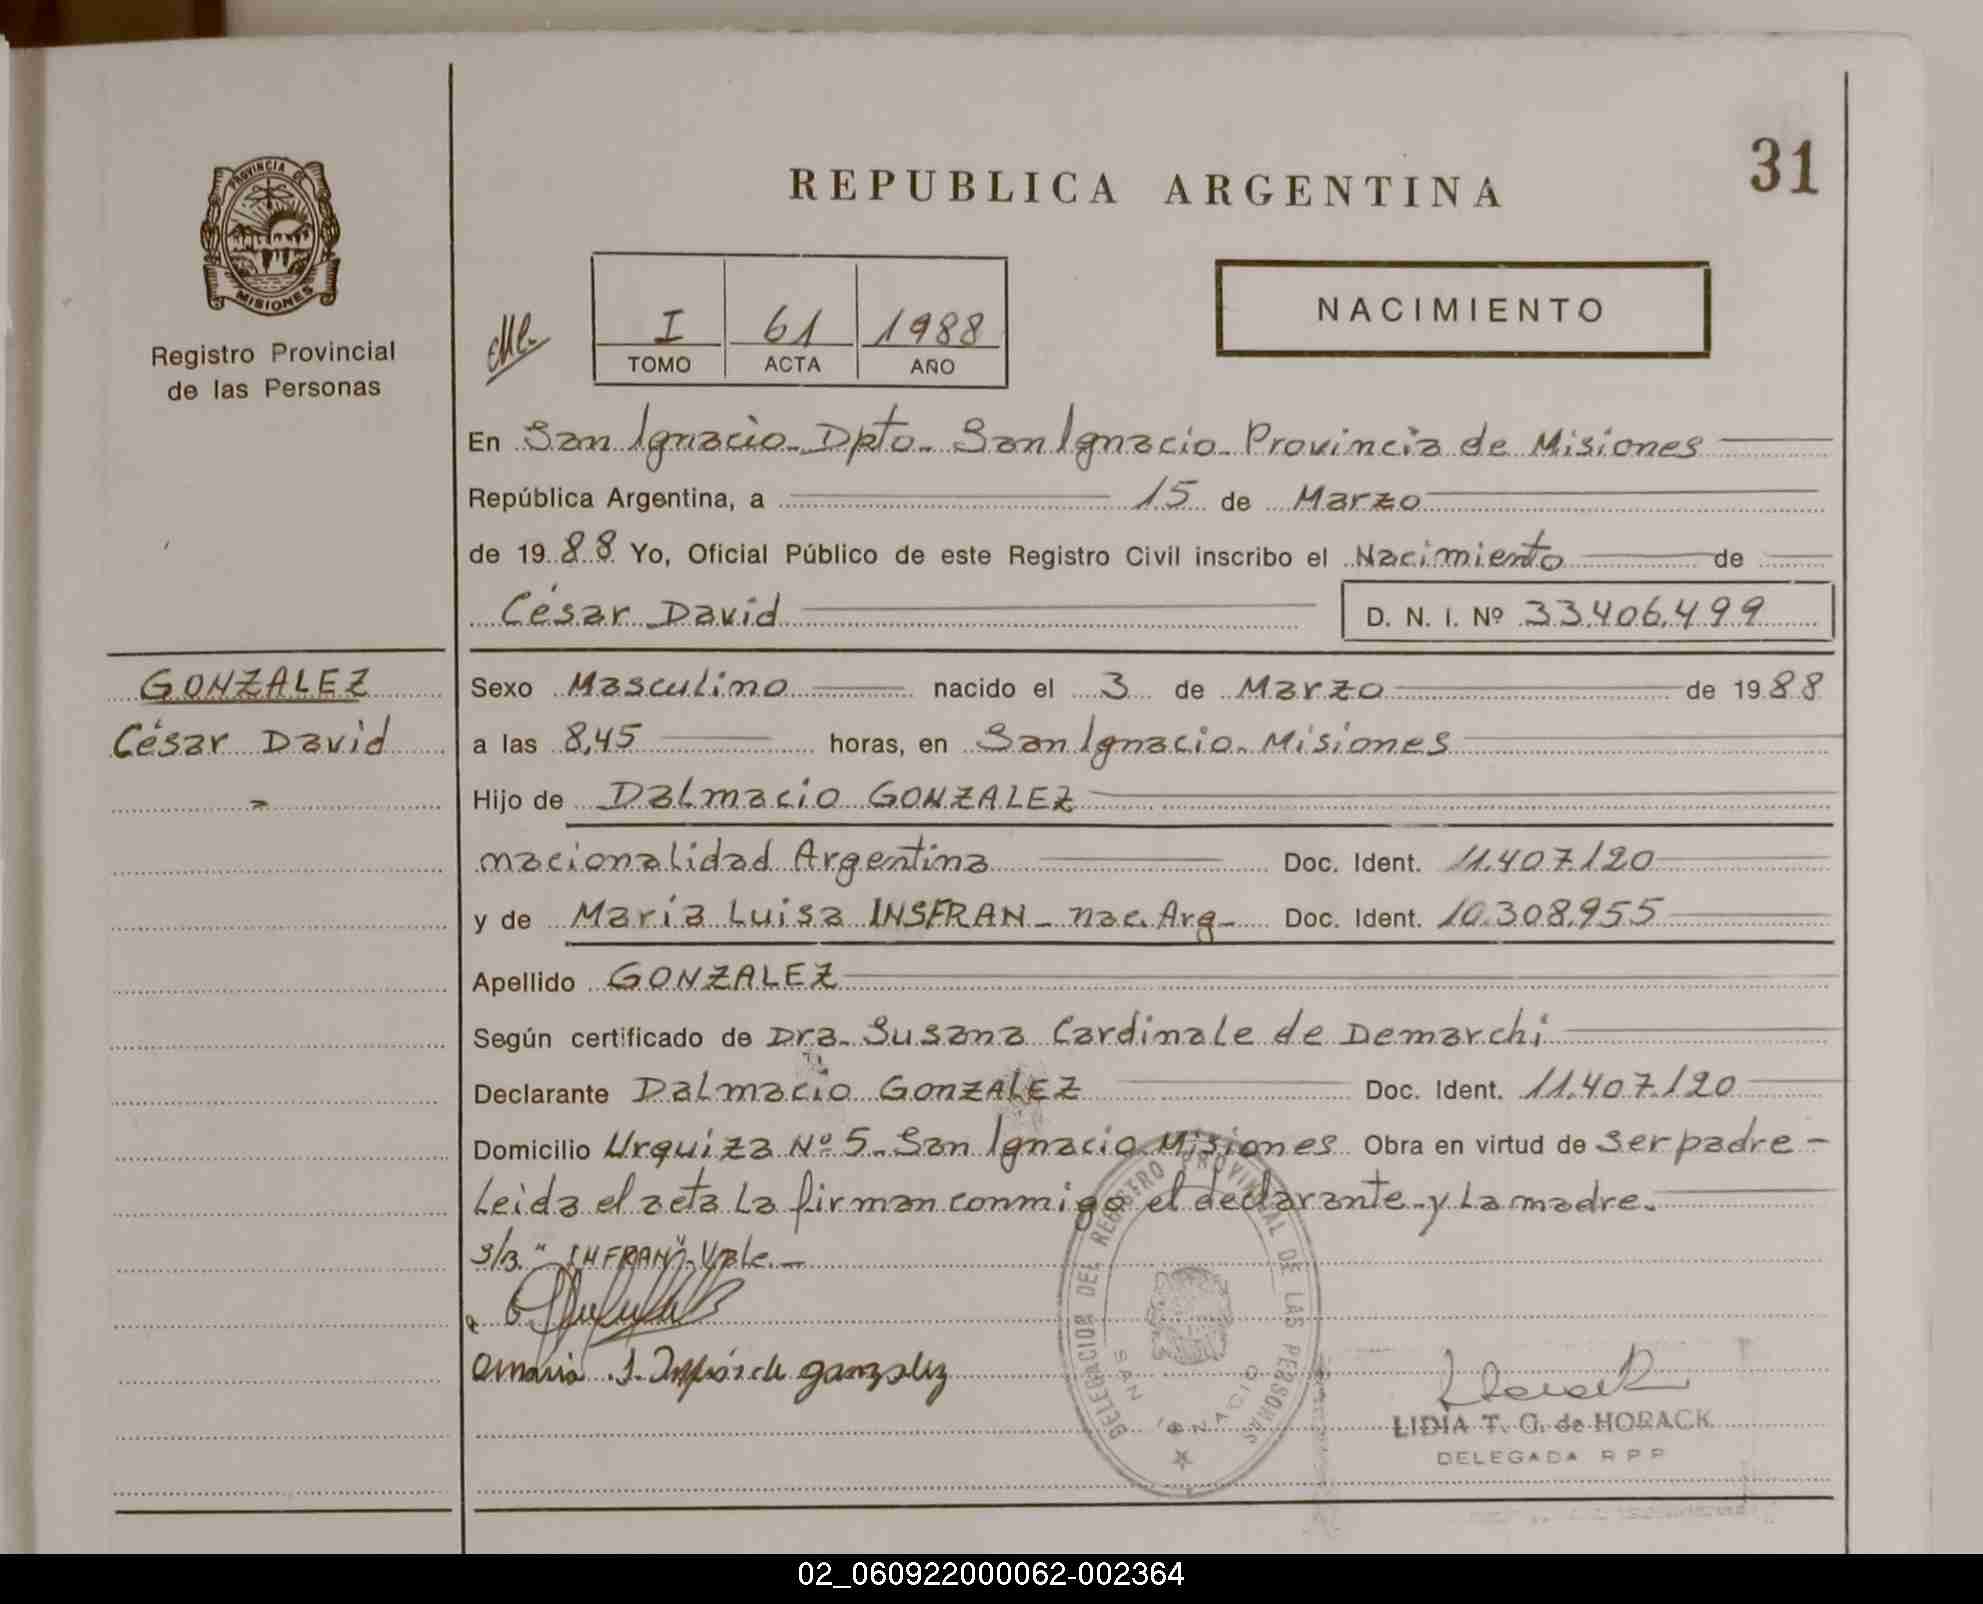 31
REPUBLICA ARGENTINA
PROVINCIA DE
MISIONES
Registro Provincial
de las Personas
I 61 1988
TOMO ACTA AÑO
NACIMIENTO
En San Ignacio - Dpto - San Ignacio - Provincia de Misiones
República Argentina, a 15 de Marzo
de 1988 Yo, Oficial Público de este Registro Civil inscribo el Nacimiento de
César David D. N. I. Nº 33.406.499
GONZALEZ
César David
Sexo Masculino nacido el 3 de Marzo de 1988
a las 8,45 horas, en San Ignacio - Misiones
Hijo de Dalmacio GONZALEZ
nacionalidad Argentina Doc. Ident. 11.407.120
y de María Luisa INSFRAN - nac. Arg - Doc. Ident. 10.308.955
Apellido GONZALEZ
Según certificado de Dra. Susana Cardinale de Demarchi
Declarante Dalmacio GONZALEZ Doc. Ident. 11.407.120
Domicilio Urquiza Nº 5 - San Ignacio Misiones Obra en virtud de ser padre -
Leida el acta La firman conmigo el declarante - y La madre.
S/B. "INFRAN" - Vale. -
de gonzalez
DELEGACION DEL REGISTRO PROVINCIAL DE LAS PERSONAS
SAN IGNACIO
LIDIA T. G. de HORACK
DELEGADA R P P
02_060922000062-002364